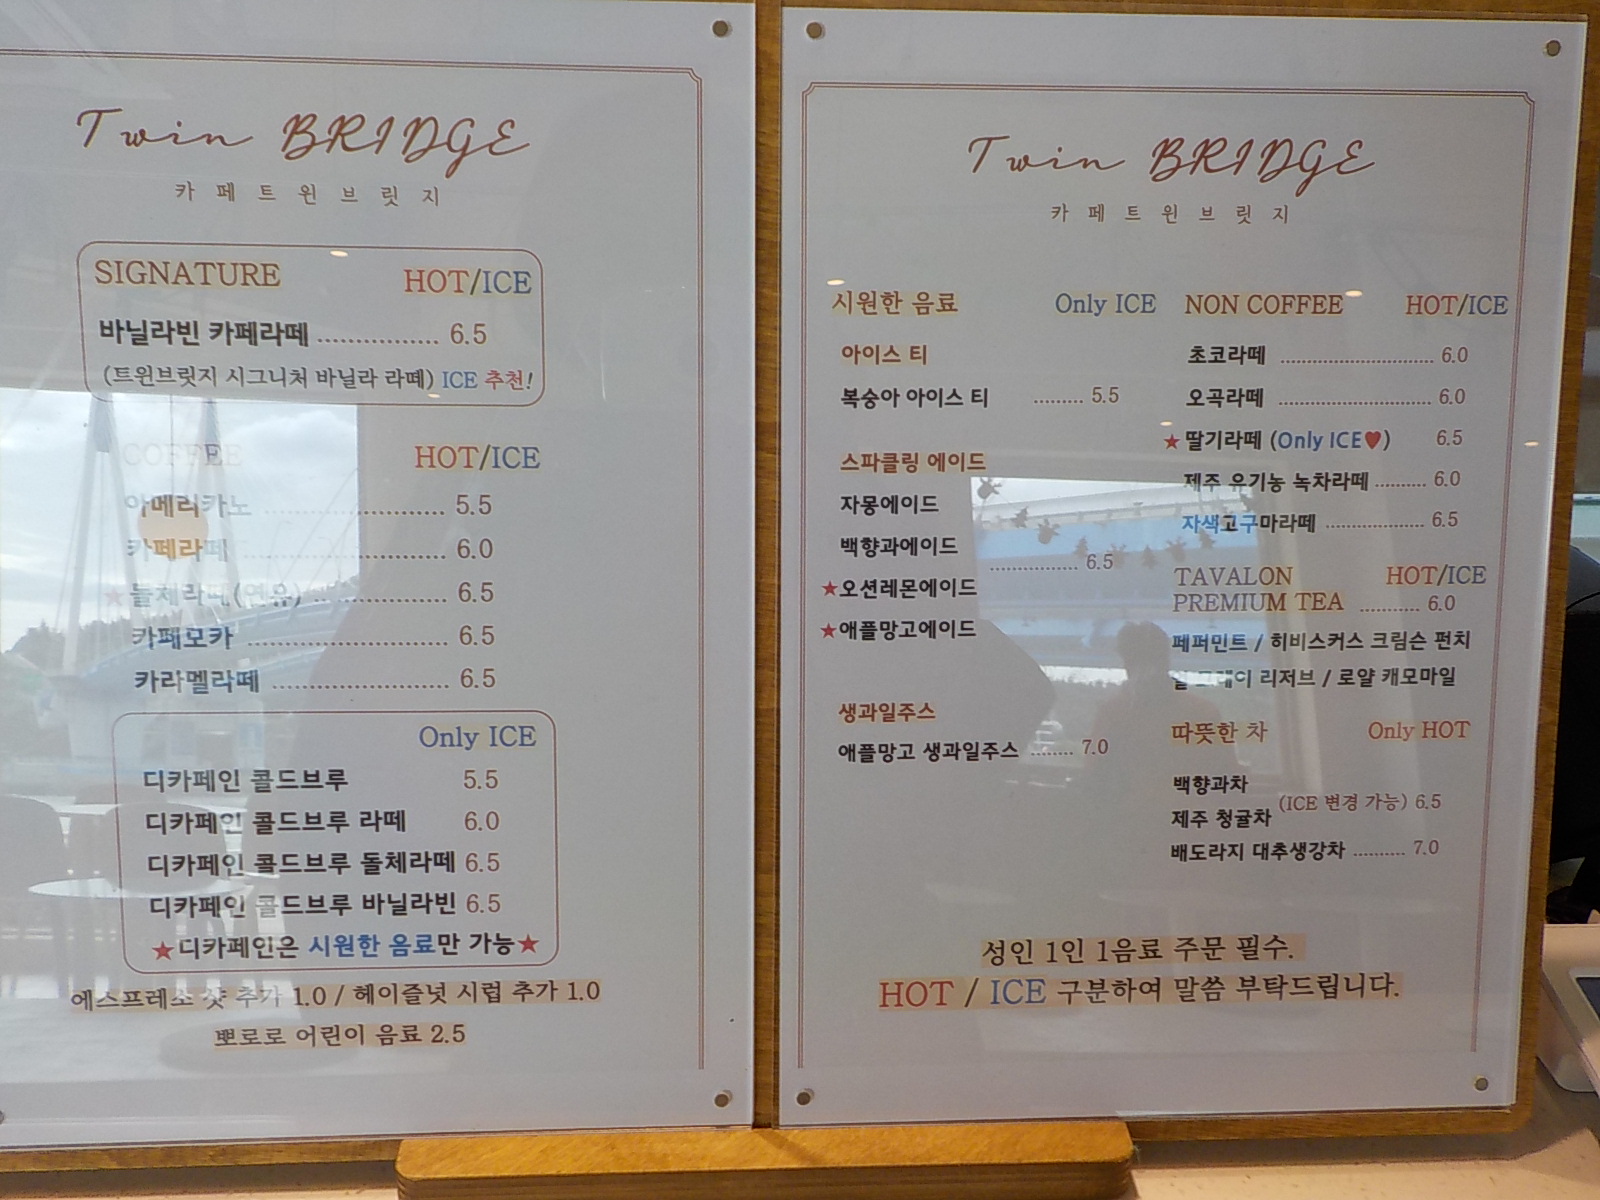 Twin BRIDGE
카페트윈브릿지
SIGNATURE HOT/ICE
바닐라빈 카페라떼 ................ 6.5
(트윈브릿지 시그니처 바닐라 라떼) ICE 추천!
COFFEE HOT/ICE
아메리카노 ........................ 5.5
카페라떼 ........................... 6.0
★돌체라떼(연유) .................. 6.5
카페모카 .......................... 6.5
카라멜라떼 ....................... 6.5
Only ICE
디카페인 콜드브루 5.5
디카페인 콜드브루 라떼 6.0
디카페인 콜드브루 돌체라떼 6.5
디카페인 콜드브루 바닐라빈 6.5
★디카페인은 시원한 음료만 가능★
에스프레소 샷 추가 1.0 / 헤이즐넛 시럽 추가 1.0
뽀로로 어린이 음료 2.5
Twin BRIDGE
카페트윈브릿지
시원한 음료 Only ICE
아이스 티
복숭아 아이스 티 ......... 5.5
스파클링 에이드
자몽에이드
백향과에이드
................ 6.5
★오션레몬에이드
★애플망고에이드
생과일주스
애플망고 생과일주스 ........ 7.0
NON COFFEE HOT/ICE
초코라떼 ............................ 6.0
오곡라떼 ............................ 6.0
★딸기라떼 (Only ICE♥) 6.5
제주 유기농 녹차라떼 .......... 6.0
자색고구마라떼 .................... 6.5
TAVALON HOT/ICE
PREMIUM TEA ........... 6.0
페퍼민트 / 히비스커스 크림슨 펀치
얼 그레이 리저브 / 로얄 캐모마일
따뜻한 차 Only HOT
백향과차
(ICE 변경 가능) 6.5
제주 청귤차
배도라지 대추생강차 .......... 7.0
성인 1인 1음료 주문 필수.
HOT / ICE 구분하여 말씀 부탁드립니다.